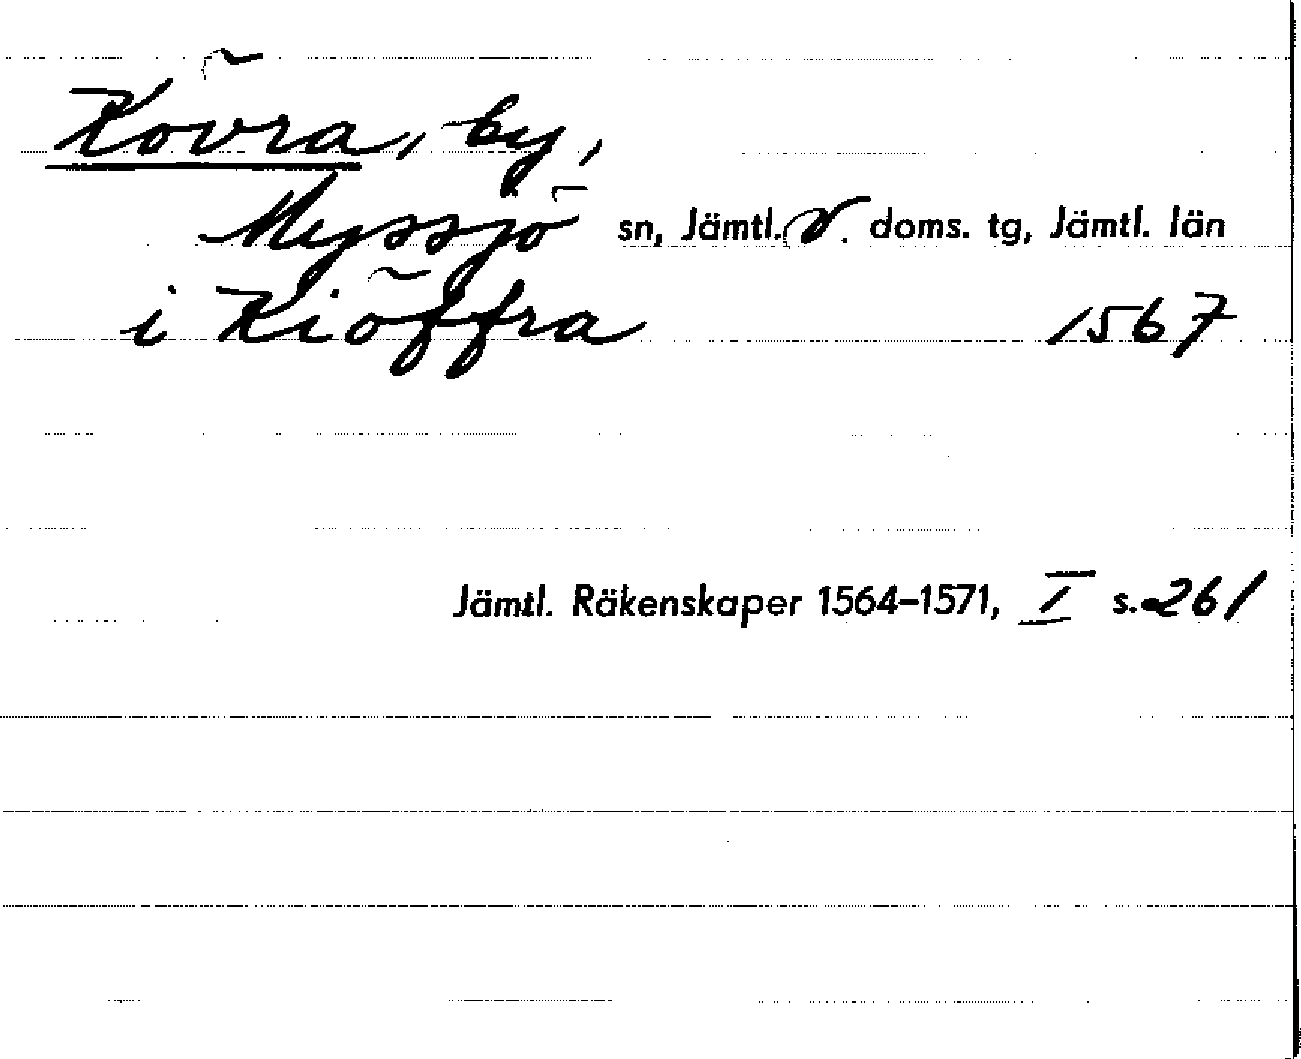 Kövra, by,
Myssjö sn, Jämtl. V. doms. tg, Jämtl. län
i Kiöffra 1567
Jämtl. Räkenskaper 1564–1571, I s. 261